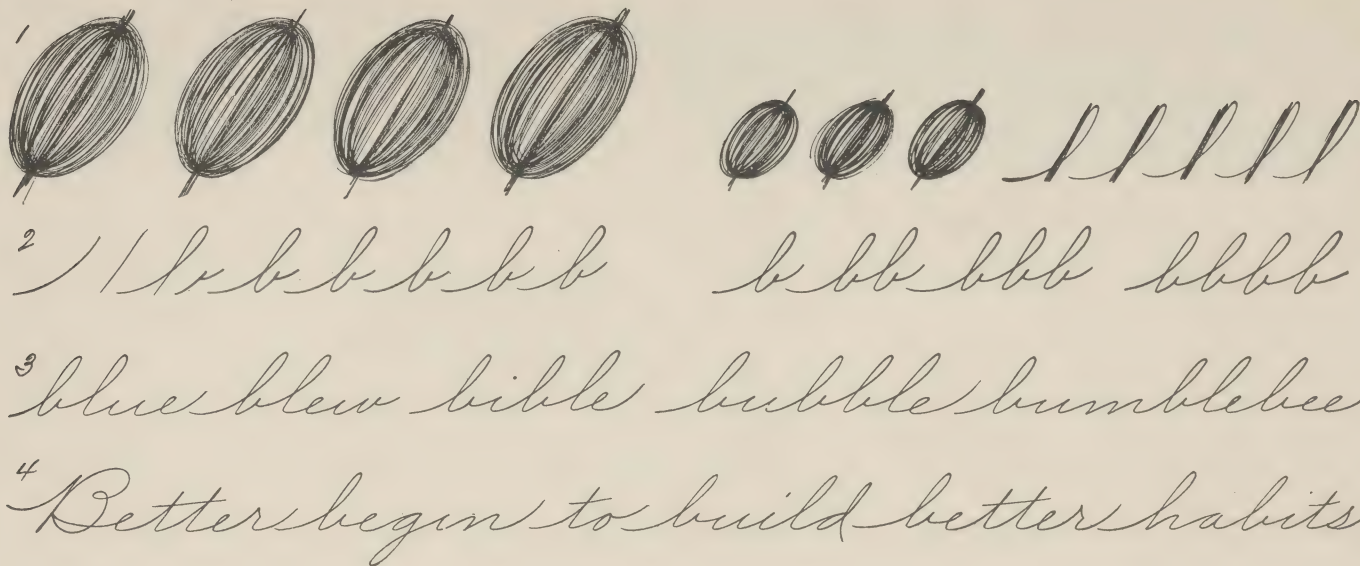 1 l l l l l
2 l b b b b b b b bb bbb bbbb
3 blue blew bible bubble bumblebee
4 Better begin to build better habits